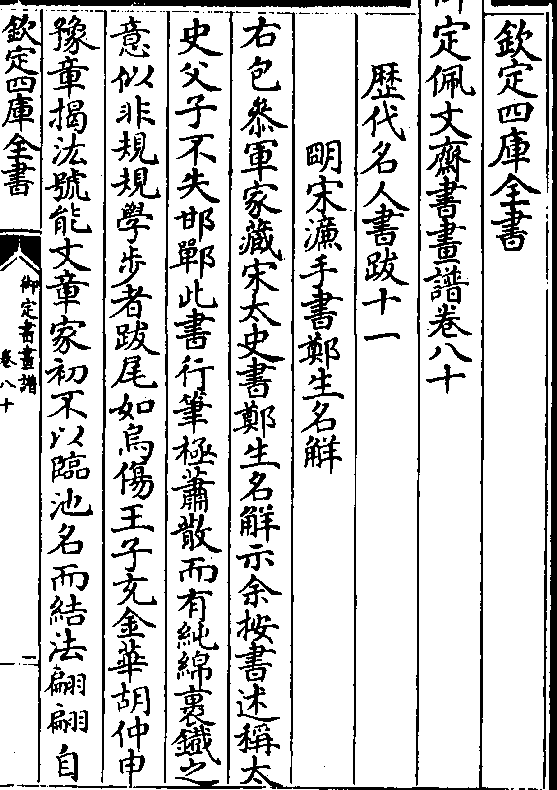 欽定四庫全書
御定佩文齋書畫譜卷八十
歷代名人書跋十一
明宋濂手書鄭生名解
右包叅軍家藏宋太史書鄭生名解示余按書述稱太
史父子不失邯鄲此書行筆極蕭散而有純綿裹鐵之
意似非規規學步者跋尾如烏傷王子充金華胡仲申
豫章揭汯號能文章家初不以臨池名而結法翩翩自
欽定四庫全書
御定書畫譜
卷八十
一